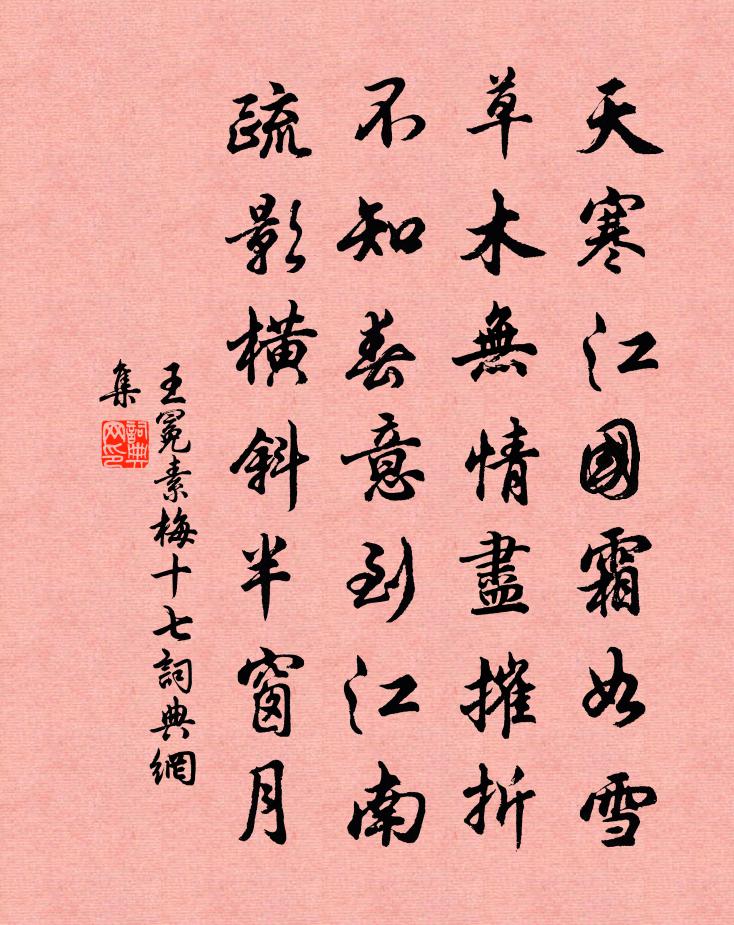 天寒江國霜如雪
草木無情盡摧折
不知春意到江南
疏影橫斜半窗月
王冕素梅十七詞典網
集
詞典
网印